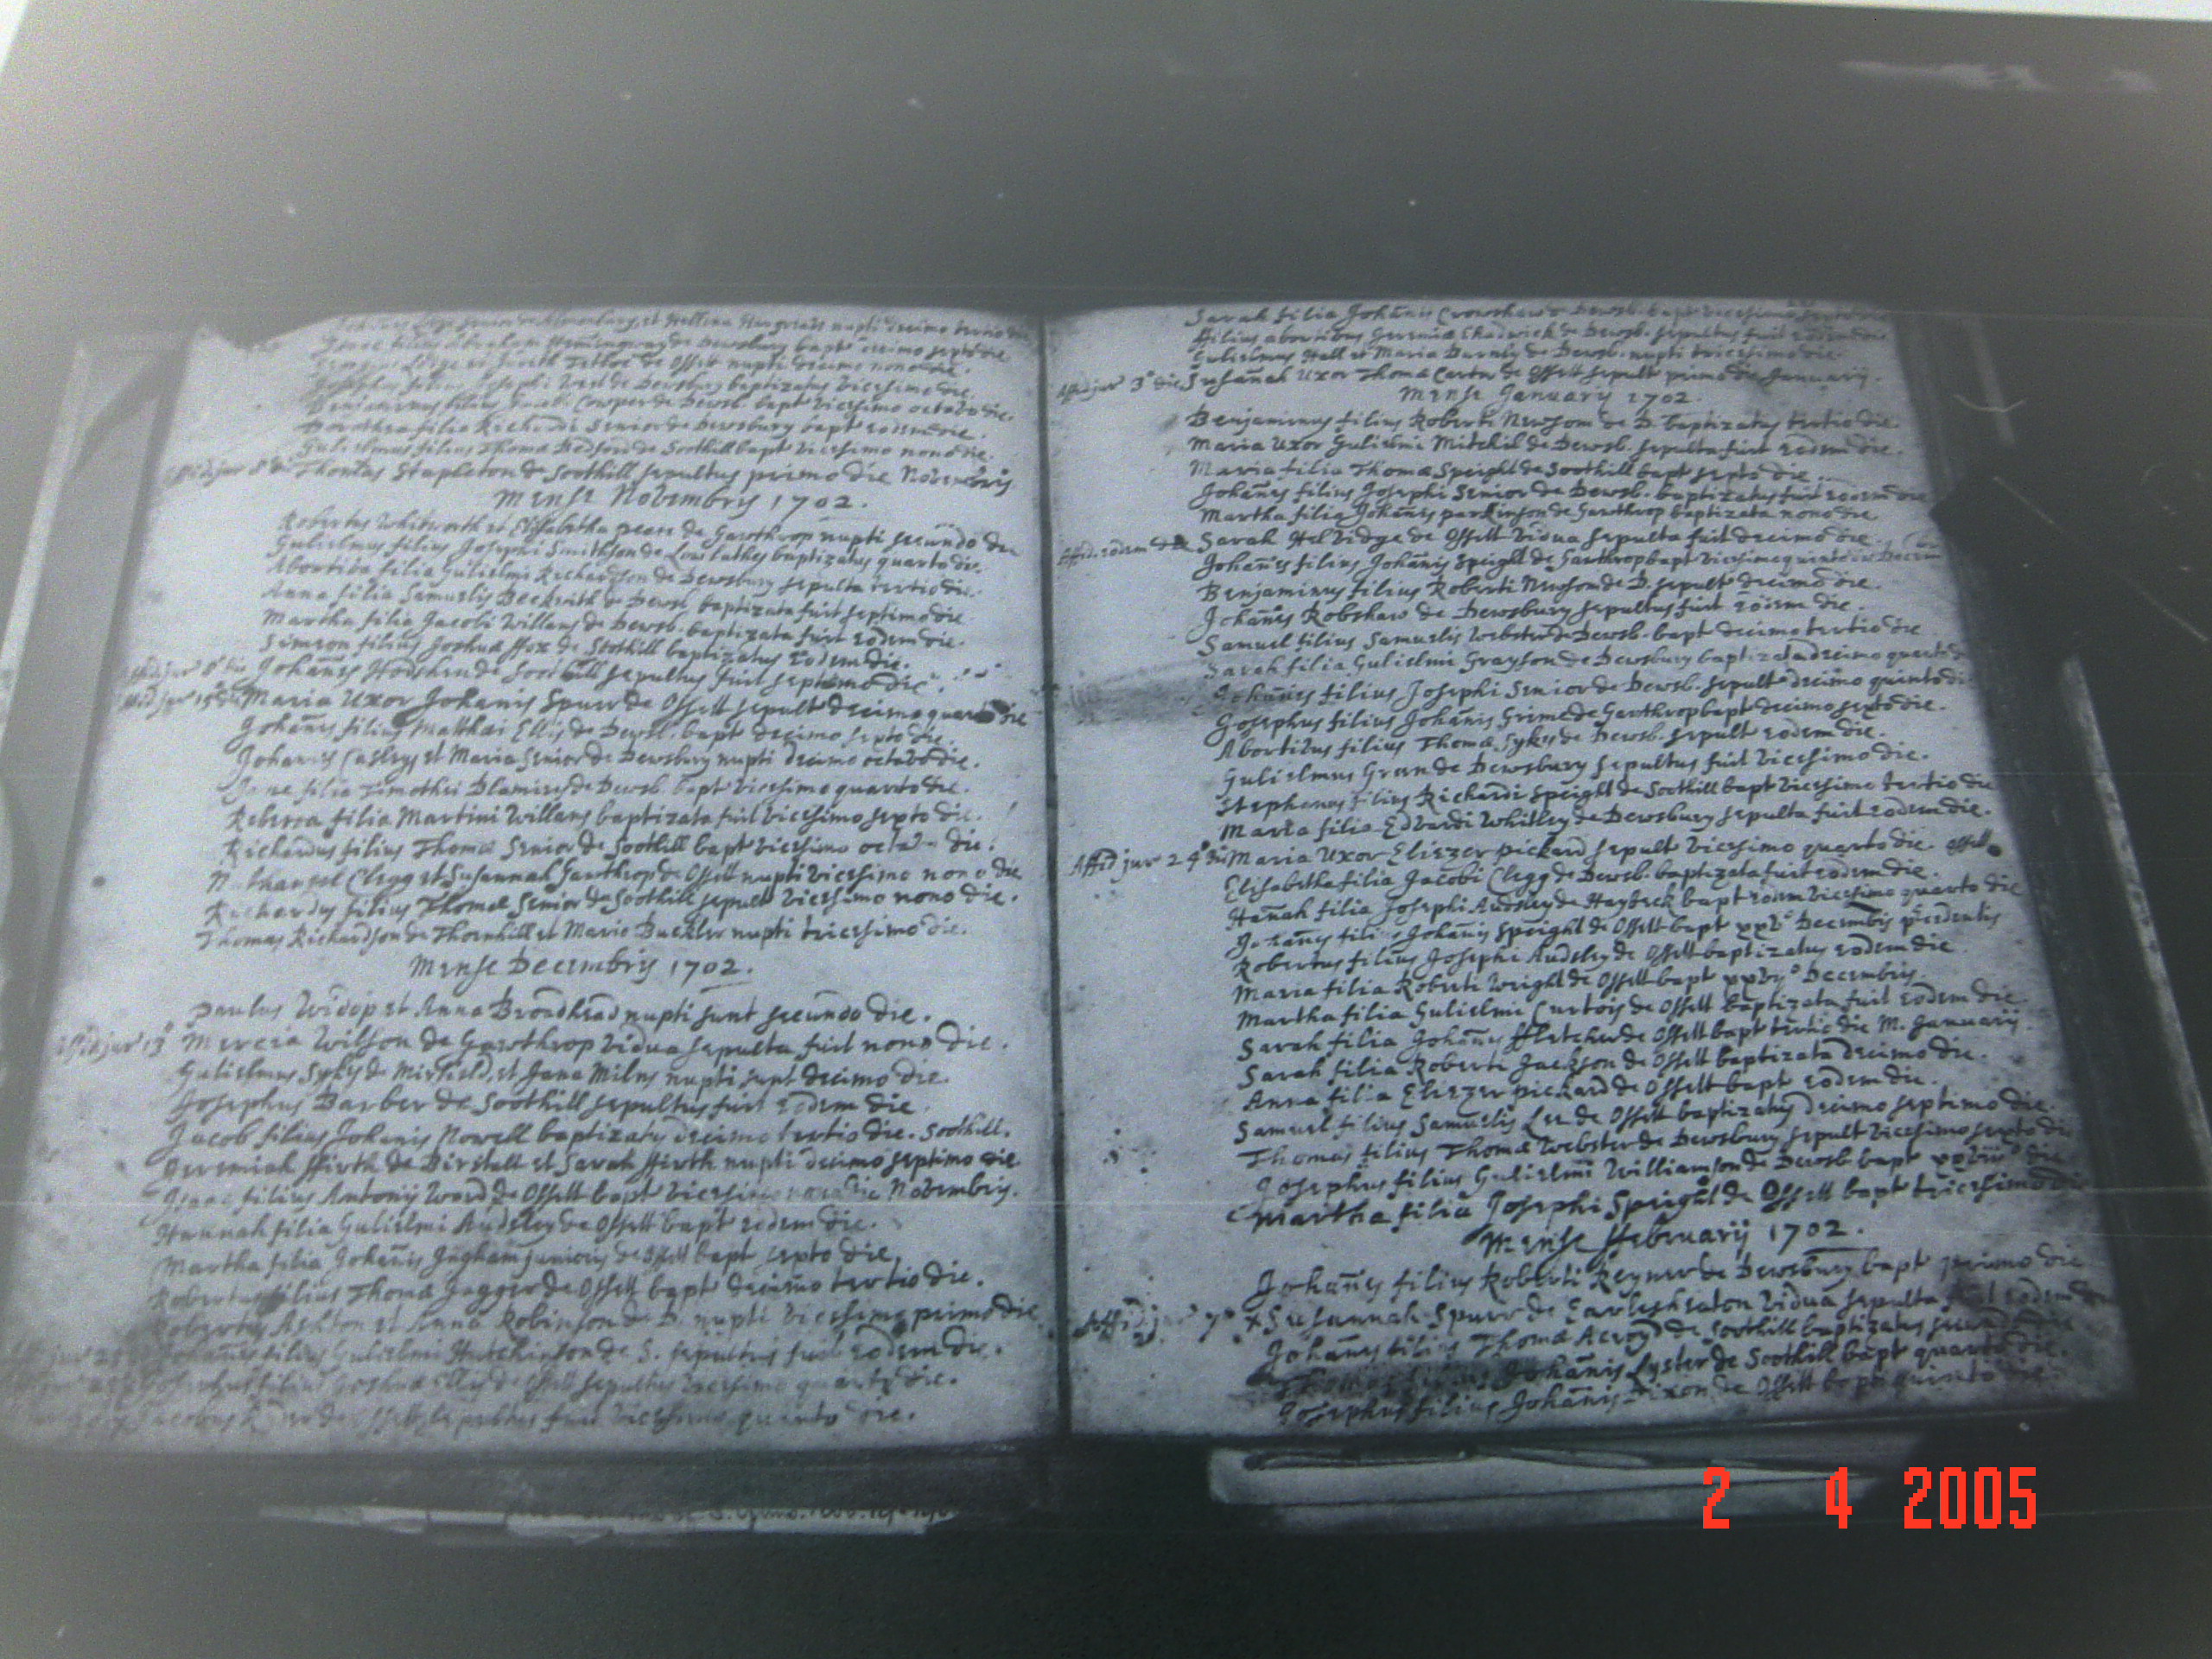 Isaac filius Abraham Hemingway de Dewsbury bapt decimo septo die
et Judith de Ossett nupti decimo nono die.
Josephus filius Josephi West de Dewsbury baptizatus vicessimo die.
Benjaminus filius Cowper de Dewsb. bapt vicessimo octavo die.
Dorothea filia Richardi Senior de Dewsbury bapt eodem die.
Gulielmus filius Thomæ Bedford de Soothill bapt vicessimo nono die.
Thomas Stapleton de Soothill sepultus primo die Novembris
Mense Novembris 1702.
Robertus Whitworth et Elisabetha de Gawthrop nupti secundo die
Gulielmus filius Josephi Smithson de Low lathes baptizatus quarto die.
Abortiva filia Gulielmi Richardson de Dewsbury sepulta tertio die.
Anna filia Samuelis Beckwith de Dewsb. baptizata fuit septimo die.
Martha filia Jacobi Willans de Dewsb. baptizata fuit eodem die.
Simeon filius Joshuæ ffox de Soothill baptizatus eodem die.
Johañes de Soothill sepultus fuit septimo die.
Maria Uxor Johanis Spurr de Ossett sepult decimo quarto die
Johañes filius Matthæi Ellis de Dewsb. bapt decimo septo die.
Johanes Casley et Maria Senior de Dewsbury nupti decimo octavo die.
Jane filia Timothei Blamirs de Dewsb. bapt vicessimo quarto die.
Rebecca filia Martini Willans baptizata fuit vicessimo septo die.
Richardus filius Thomæ Senior de Soothill bapt vicessimo octavo die.
Nathanael Clegg et Susannah Gawthrop de Ossett nupti vicessimo nono die
Richardus filius Thomæ Senior de Soothill sepult vicessimo nono die.
Thomas Richardson de Thornhill et Maria Buckler nupti tricessimo die.
Mense Decembris 1702.
Paulus Widop et Anna Broadhead nupti sunt secundo die.
Affid jur 13° Mercia Wilson de Gawthrop vidua sepulta fuit nono die.
Gulielmus Sykes de Mirfield, et Jana Milns nupti sunt decimo die.
Josephus Barber de Soothill sepultus fuit eodem die
Jacob filius Johanis Nowell baptizatus decimo tertio die. Soothill.
Jeremiah ffirth de Birstall et Sarah ffirth nupti decimo septimo die
Isaac filius Antonij Ward de Ossett bapt vicessimo die Novembris.
Hannah filia Gulielmi Audsley de Ossett bapt eodem die.
Martha filia Johañis Jngham junioris de Ossett bapt septo die,
Robertus filius Thomæ Jagger de Ossett bapt decimo tertio die.
Robertus Ashton et Anna Robinson de D. nupti vicessimo primo die
Johañes filius Gulielmi Hutchinson de S. sepultus fuit eodem die.
Josephus filius Joshuæ de Ossett sepultus vicessimo quarto die.
Jacobus de Ossett sepultus fuit vicessimo quinto die.
Sarah filia Johañis Crowshaw de Dewsb. bapt vicessimo
filius abortivus Jeremiæ Chadwick de Dewsb. sepultus fuit eodem die
Gulielmus Hall et Maria de Dewsb. nupti tricessimo die.
Affid jur 3° die Susañah Uxor Thomæ Carter de Ossett sepult primo die Januarij.
Mense Januarij 1702.
Benjaminus filius Roberti Newsom de D. baptizatus tertio die.
Maria Uxor Gulielmi Mitchil de Dewsb. sepulta fuit eodem die.
Maria filia Thomæ Speight de Soothill bapt septo die.
Johañes filius Josephi Senior de Dewsb. baptizatus fuit eodem die
Martha filia Johañis parkinson de Gawthrop baptizata nono die
Affid. eodem die Sarah Helvidge de Ossett vidua sepulta fuit decimo die.
Johañes filius Johañis Speight de Gawthrop bapt vicessimo quinto die
Benjaminus filius Roberti Newsom de D. sepult decimo die.
Johañes Robshaw de Dewsbury sepultus fuit eodem die.
Samuel filius Samuelis Webster de Dewsb. bapt decimo tertio die
Sarah filia Gulielmi Grayson de Dewsbury baptizata decimo quarto die
Johañes filius Josephi Senior de Dewsb. sepult decimo quinto die
Josephus filius Johañis Grime de Gawthrop bapt decimo septo die.
Abortivus filius Thomæ Sykes de Dewsb. sepult eodem die.
Gulielmus Green de Dewsbury sepultus fuit vicessimo die.
Stephanus filius Richardi Speight de Soothill bapt vicessimo tertio die
Maria filia Edvardi Whitley de Dewsbury sepulta fuit eodem die.
Affid jur 24° die Maria Uxor Eliezer pickard sepult vicessimo quarto die. Ossett
Elisabetha filia Jacobi Clegg de Dewsb. baptizata fuit eodem die.
Hañah filia Josephi Audsley de Haybeck bapt eodem vicessimo quarto die
Johañes filius Johañis Speight de Ossett bapt xxv° Decembris
Robertus filius Josephi Audsley de Ossett baptizatus eodem die
Maria filia Roberti Wright de Ossett bapt xxvj° Decembris.
Martha filia Gulielmi Curtois de Ossett baptizata fuit eodem die
Sarah filia Johañis ffletcher de Ossett bapt tertio die M. Januarij
Sarah filia Roberti Jackson de Ossett baptizata decimo die.
Anna filia Eliezer pickard de Ossett bapt eodem die.
Samuel filius Samuelis Lee de Ossett baptizatus decimo septimo die.
Thomas filius Thomæ Webster de Dewsbury sepult vicessimo septo die
Josephus filius Gulielmi Williamson de Dewsb. bapt xxvij° die
Martha filia Josephi Speight de Ossett bapt tricessimo die
Mense ffebruarij 1702.
Johañes filius Roberti Reyner de Dewsbury bapt primo die
Affid jur 7° x Susannah Spurr de Earlesheaton vidua sepulta fuit eodem die
Johañes filius Thomæ Acroyd de Soothill baptizatus secundo die
Thomas Johañis Lyster de Soothill bapt quarto die.
Josephus filius Johañis Dixon de Ossett bapt quinto die.
2 4 2005